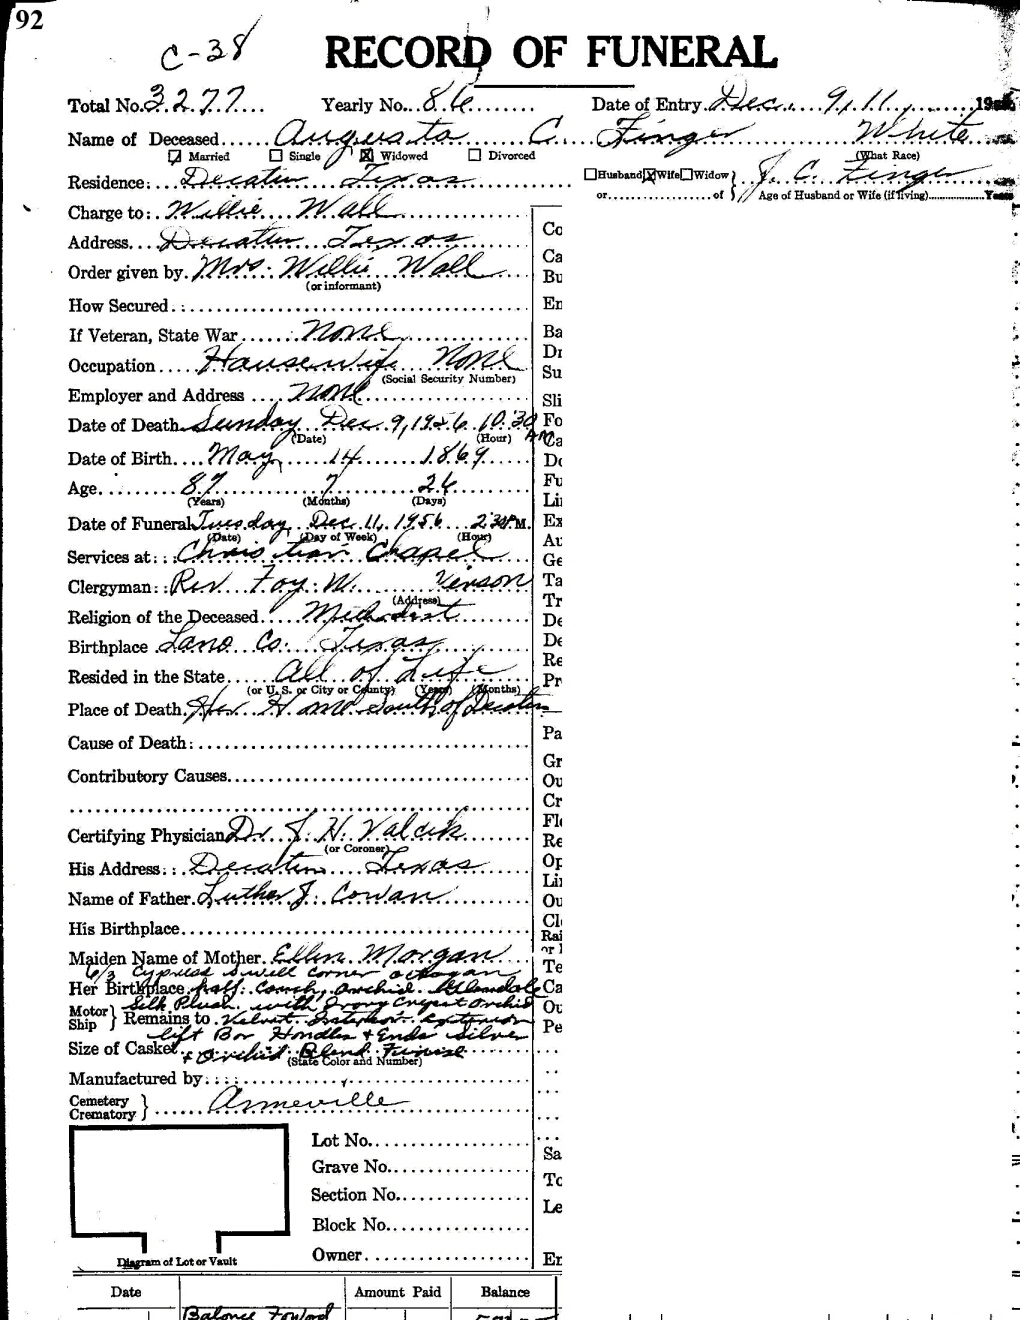 92
C-38
RECORD OF FUNERAL
Total No. 3277 Yearly No. 86 Date of Entry Dec. 9, 11, 19
Name of Deceased Augusta C. Finger White
Married Single Widowed Divorced (What Race)
Residence: Decatur Texas Husband Wife Widow } J. C. Finger
or of } Age of Husband or Wife (if living) Years
Charge to: Willie Wall
Co
Address Decatur Texas
Ca
Order given by Mrs. Willie Wall Bu
(or informant)
How Secured En
If Veteran, State War None Ba
Di
Occupation Hausewife None Su
(Social Security Number)
Employer and Address none Sli
Date of Death Sunday Dec. 9, 1956 10:30 AM Fo
(Date) (Hour) Ca
Date of Birth May 14 1869 De
Age 87 7 26 Fu
(Years) (Months) (Days) Li
Date of Funeral Tuesday Dec 11, 1956 2:30 PM. Ex
(Date) (Day of Week) (Hour) Au
Services at: Christian Chapel Ge
Clergyman: Rev. Foy W. Vinson Ta
(Address) Tr
Religion of the Deceased Methodist De
Birthplace Lano Co. Texas De
Re
Resided in the State All of Life Pr
(or U. S. or City or County) (Years) (Months)
Place of Death Her Home South of Decatur
Cause of Death: Pa
Gr
Contributory Causes Ou
Cr
Fl
Certifying Physician Dr. J. H. Valcik Re
(or Coroner)
His Address: Decatur Texas Op
Li
Name of Father Luther J. Cowan Ou
His Birthplace Cl
Rai
or
Maiden Name of Mother Ellen Morgan
6/3 Cypress Swell corner octogan Te
Her Birthplace half couch, orchid Ca
Silk Plush with Ivory Crepe Orchid Ou
Motor Ship } Remains to Velvet Interior exterior Pe
lift Bar Handles & Ends Silver
Size of Casket & Orchid Blend
(State Color and Number)
Manufactured by:
Cemetery
Crematory } Anneville
Lot No.
Sa
Grave No. To
Section No. Le
Block No.
Diagram of Lot or Vault Owner En
Date Amount Paid Balance
Balance Foward